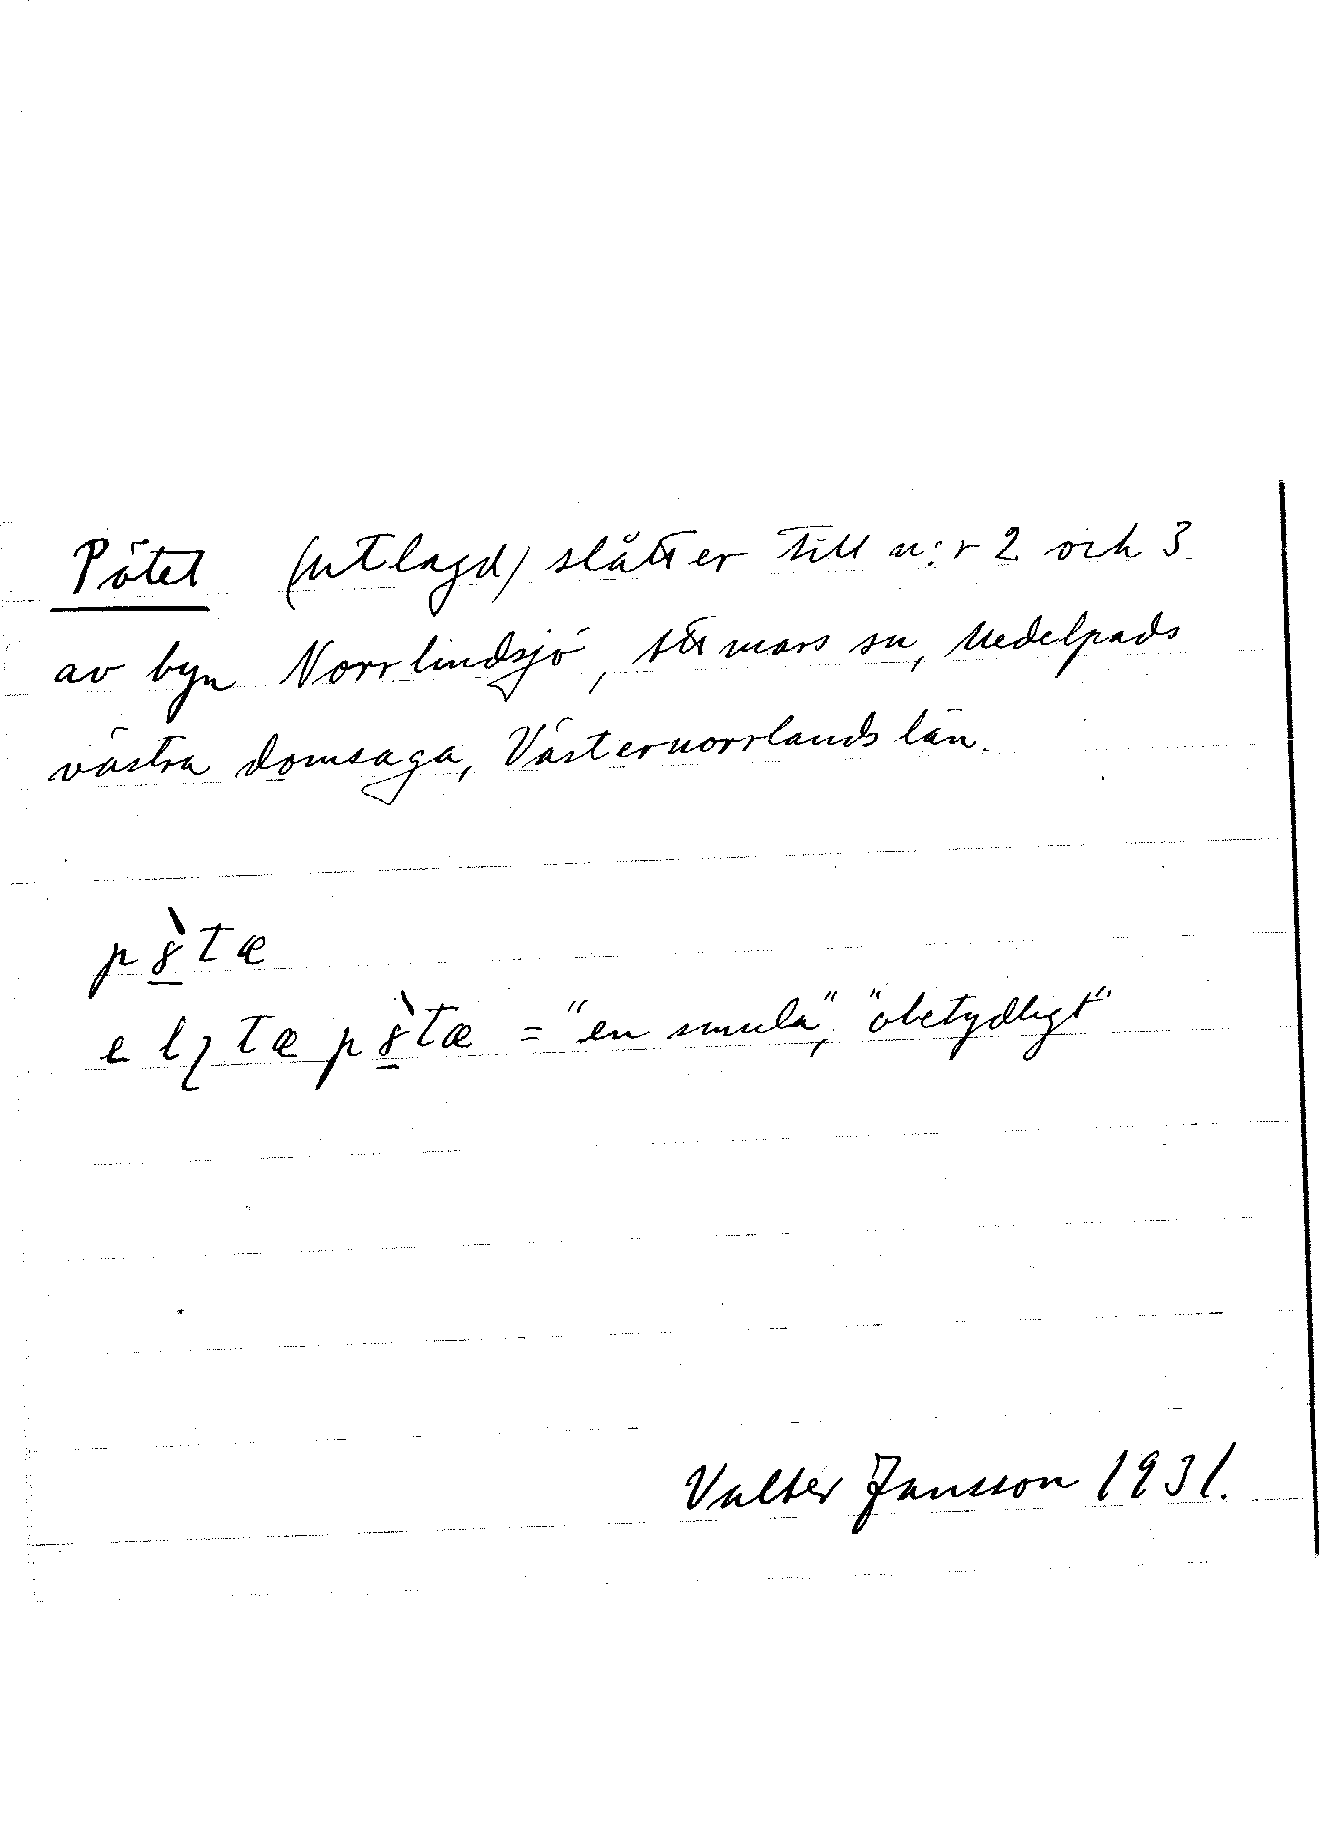 Pötet (utlagd) slåtter till n:r 2 och 3
av byn Norrlindsjö, Attmars sn, Medelpads
västra domsaga, Västernorrlands län.
e
= "en smula", "obetydligt"
Valter Jansson 1931.